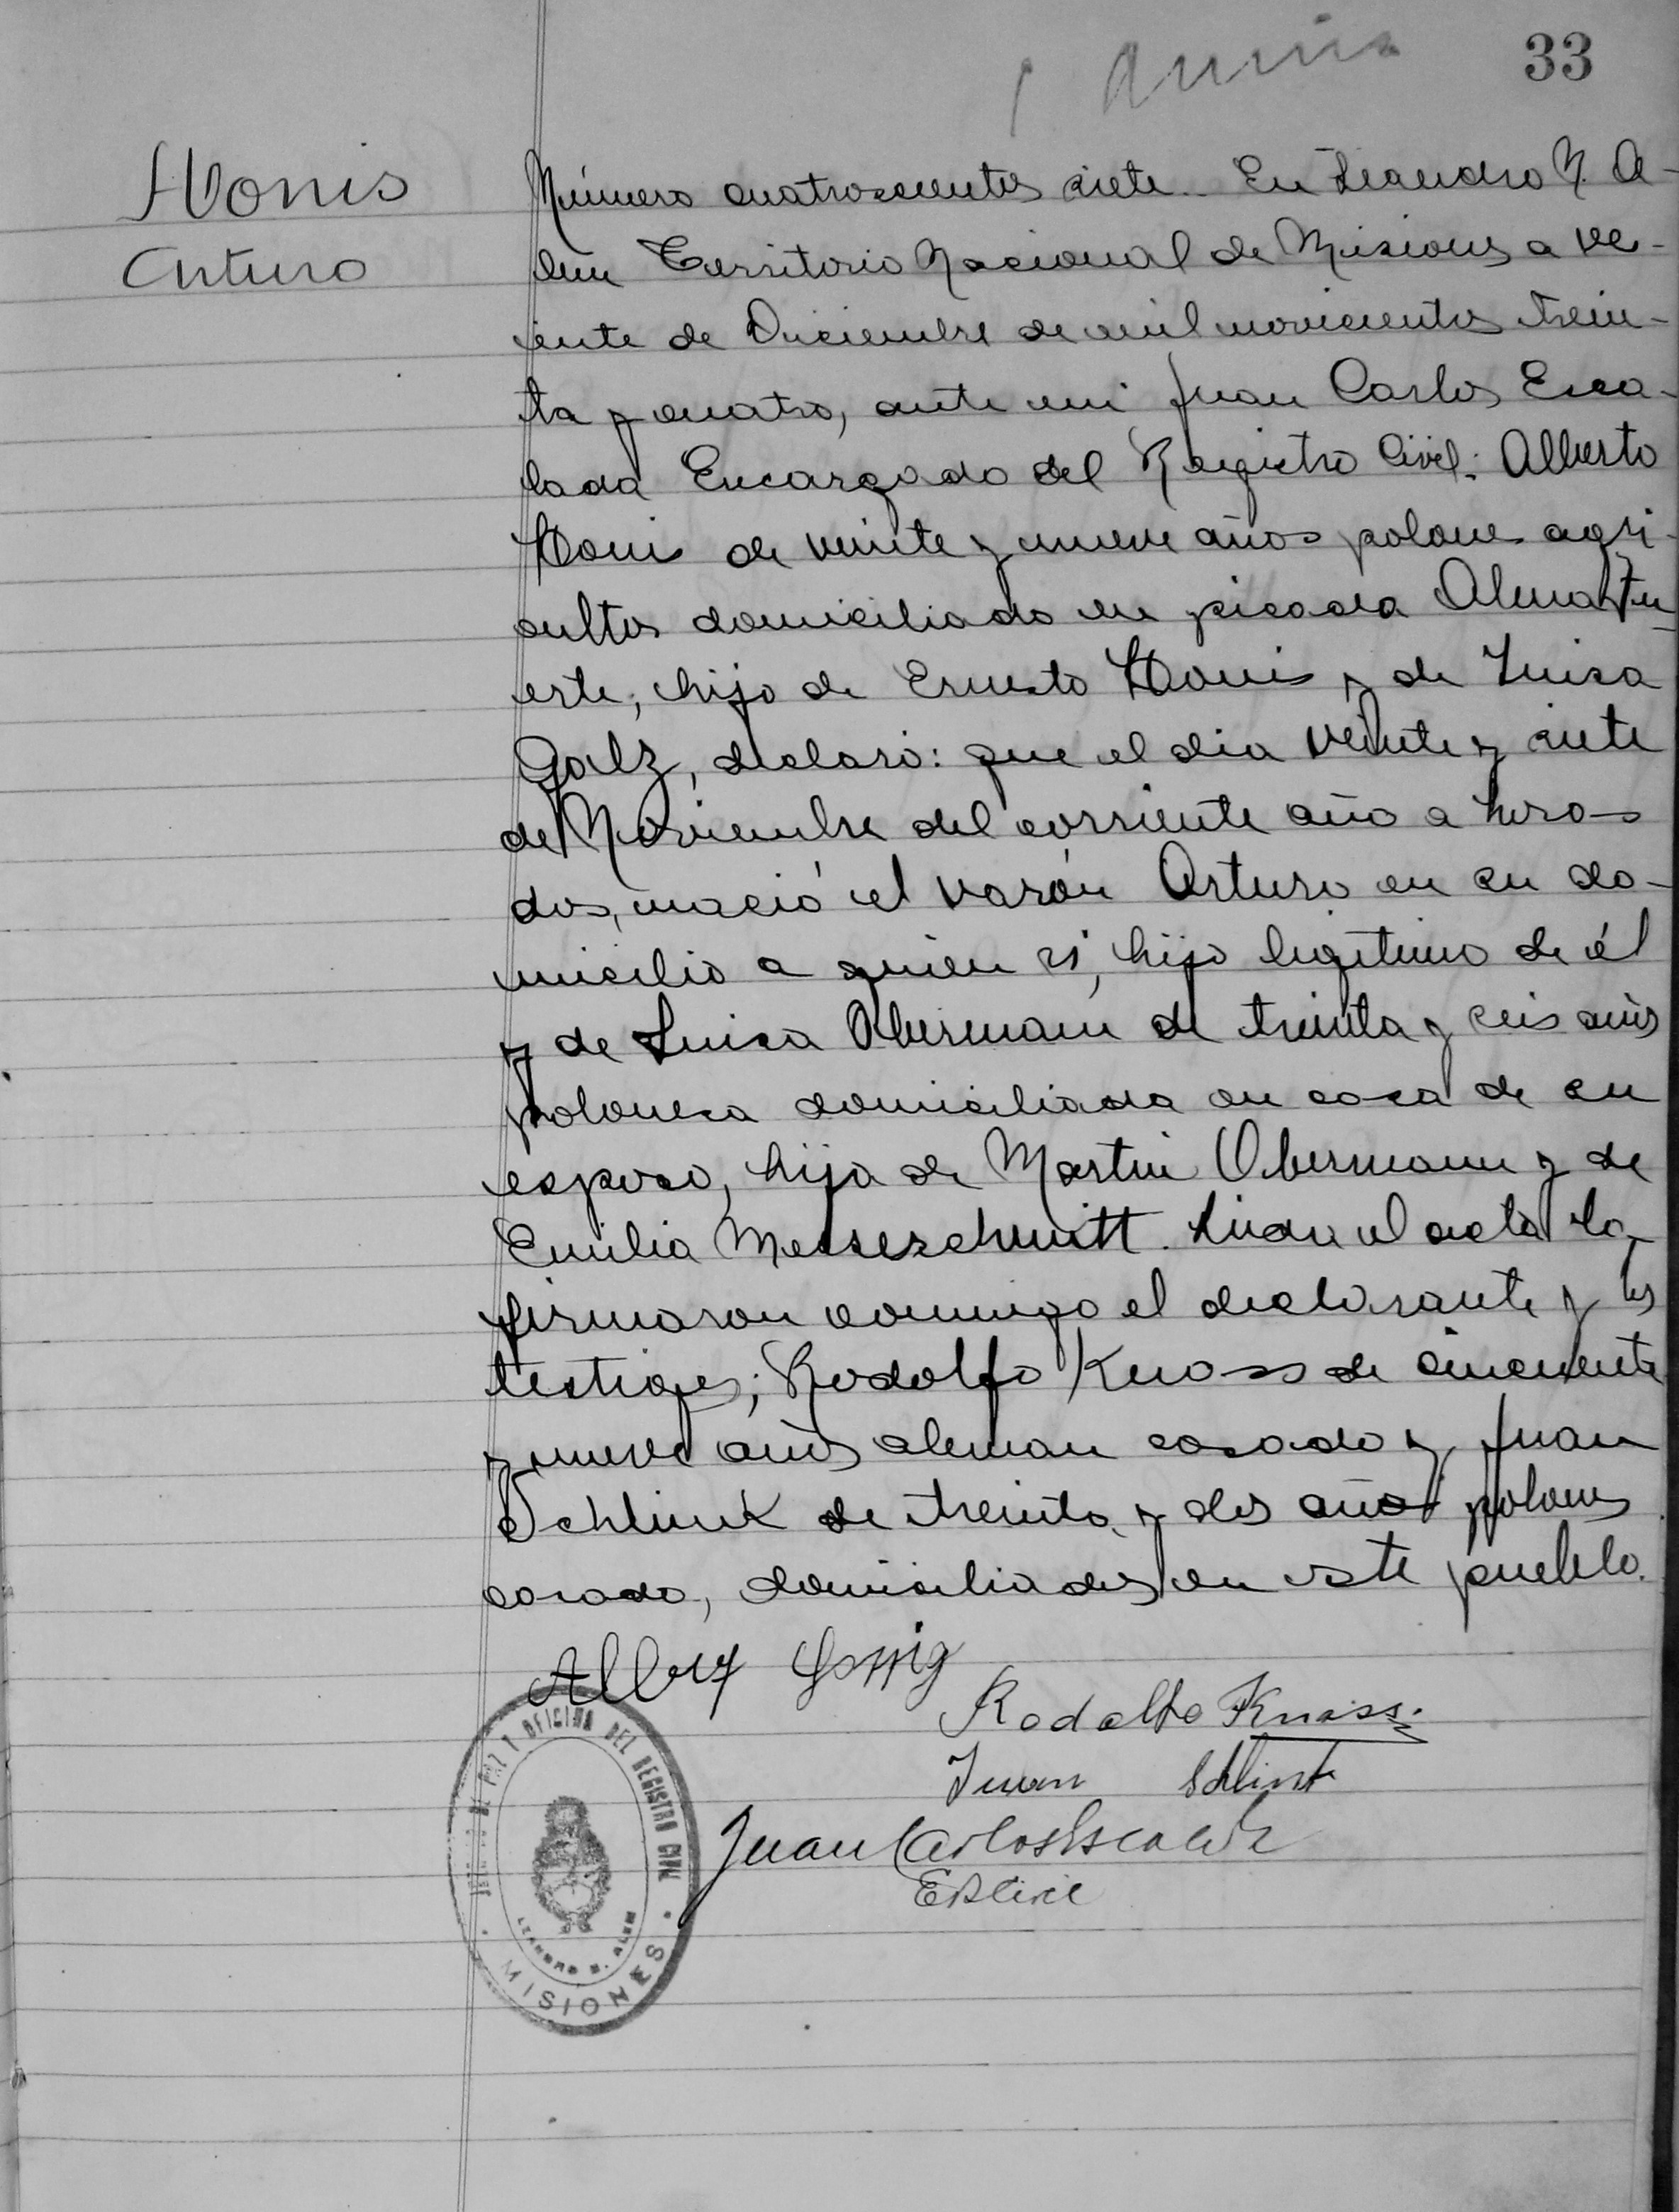 33
Honis
Arturo
Número cuatroscientos siete.. En Leandro N. A-
lem Territorio Nacional de Misiones a ve-
iente de Diciembre de mil novicientos trein-
ta y cuatro, ante mi Juan Carlos Esca-
lada Encargado del Registro Civil: Alberto
Honis de veinte y nueve años polones agri-
cultor domiciliado en picada Almafu-
erte, hijo de Ernesto Honis y de Luisa
Golz, declaró: que el dia veinte y siete
de Noviembre del corriente año a horas
dos, nació el varón Arturo en su do-
micilio a quien vi, hijo legitimo de él
y de Luisa Obermann de treinta y seis años
polonesa domiciliada en casa de su
esposo, hija de Martin Obermann y de
Emilia Messerschmitt. Leida el acta la
firmaron conmigo el declarante y los
testigos; Rodolfo Knoss de cincuenta
y nueve años aleman casado y Juan
Schlink de treinta y dos años polones
casado, domiciliados en este pueblo.
Rodolfo Knass.
Juan Schlink
Juan Carlos Escalada
JUZGADO DE PAZ Y OFICINA DEL REGISTRO CIVIL
LEANDRO N. ALEM
MISIONES